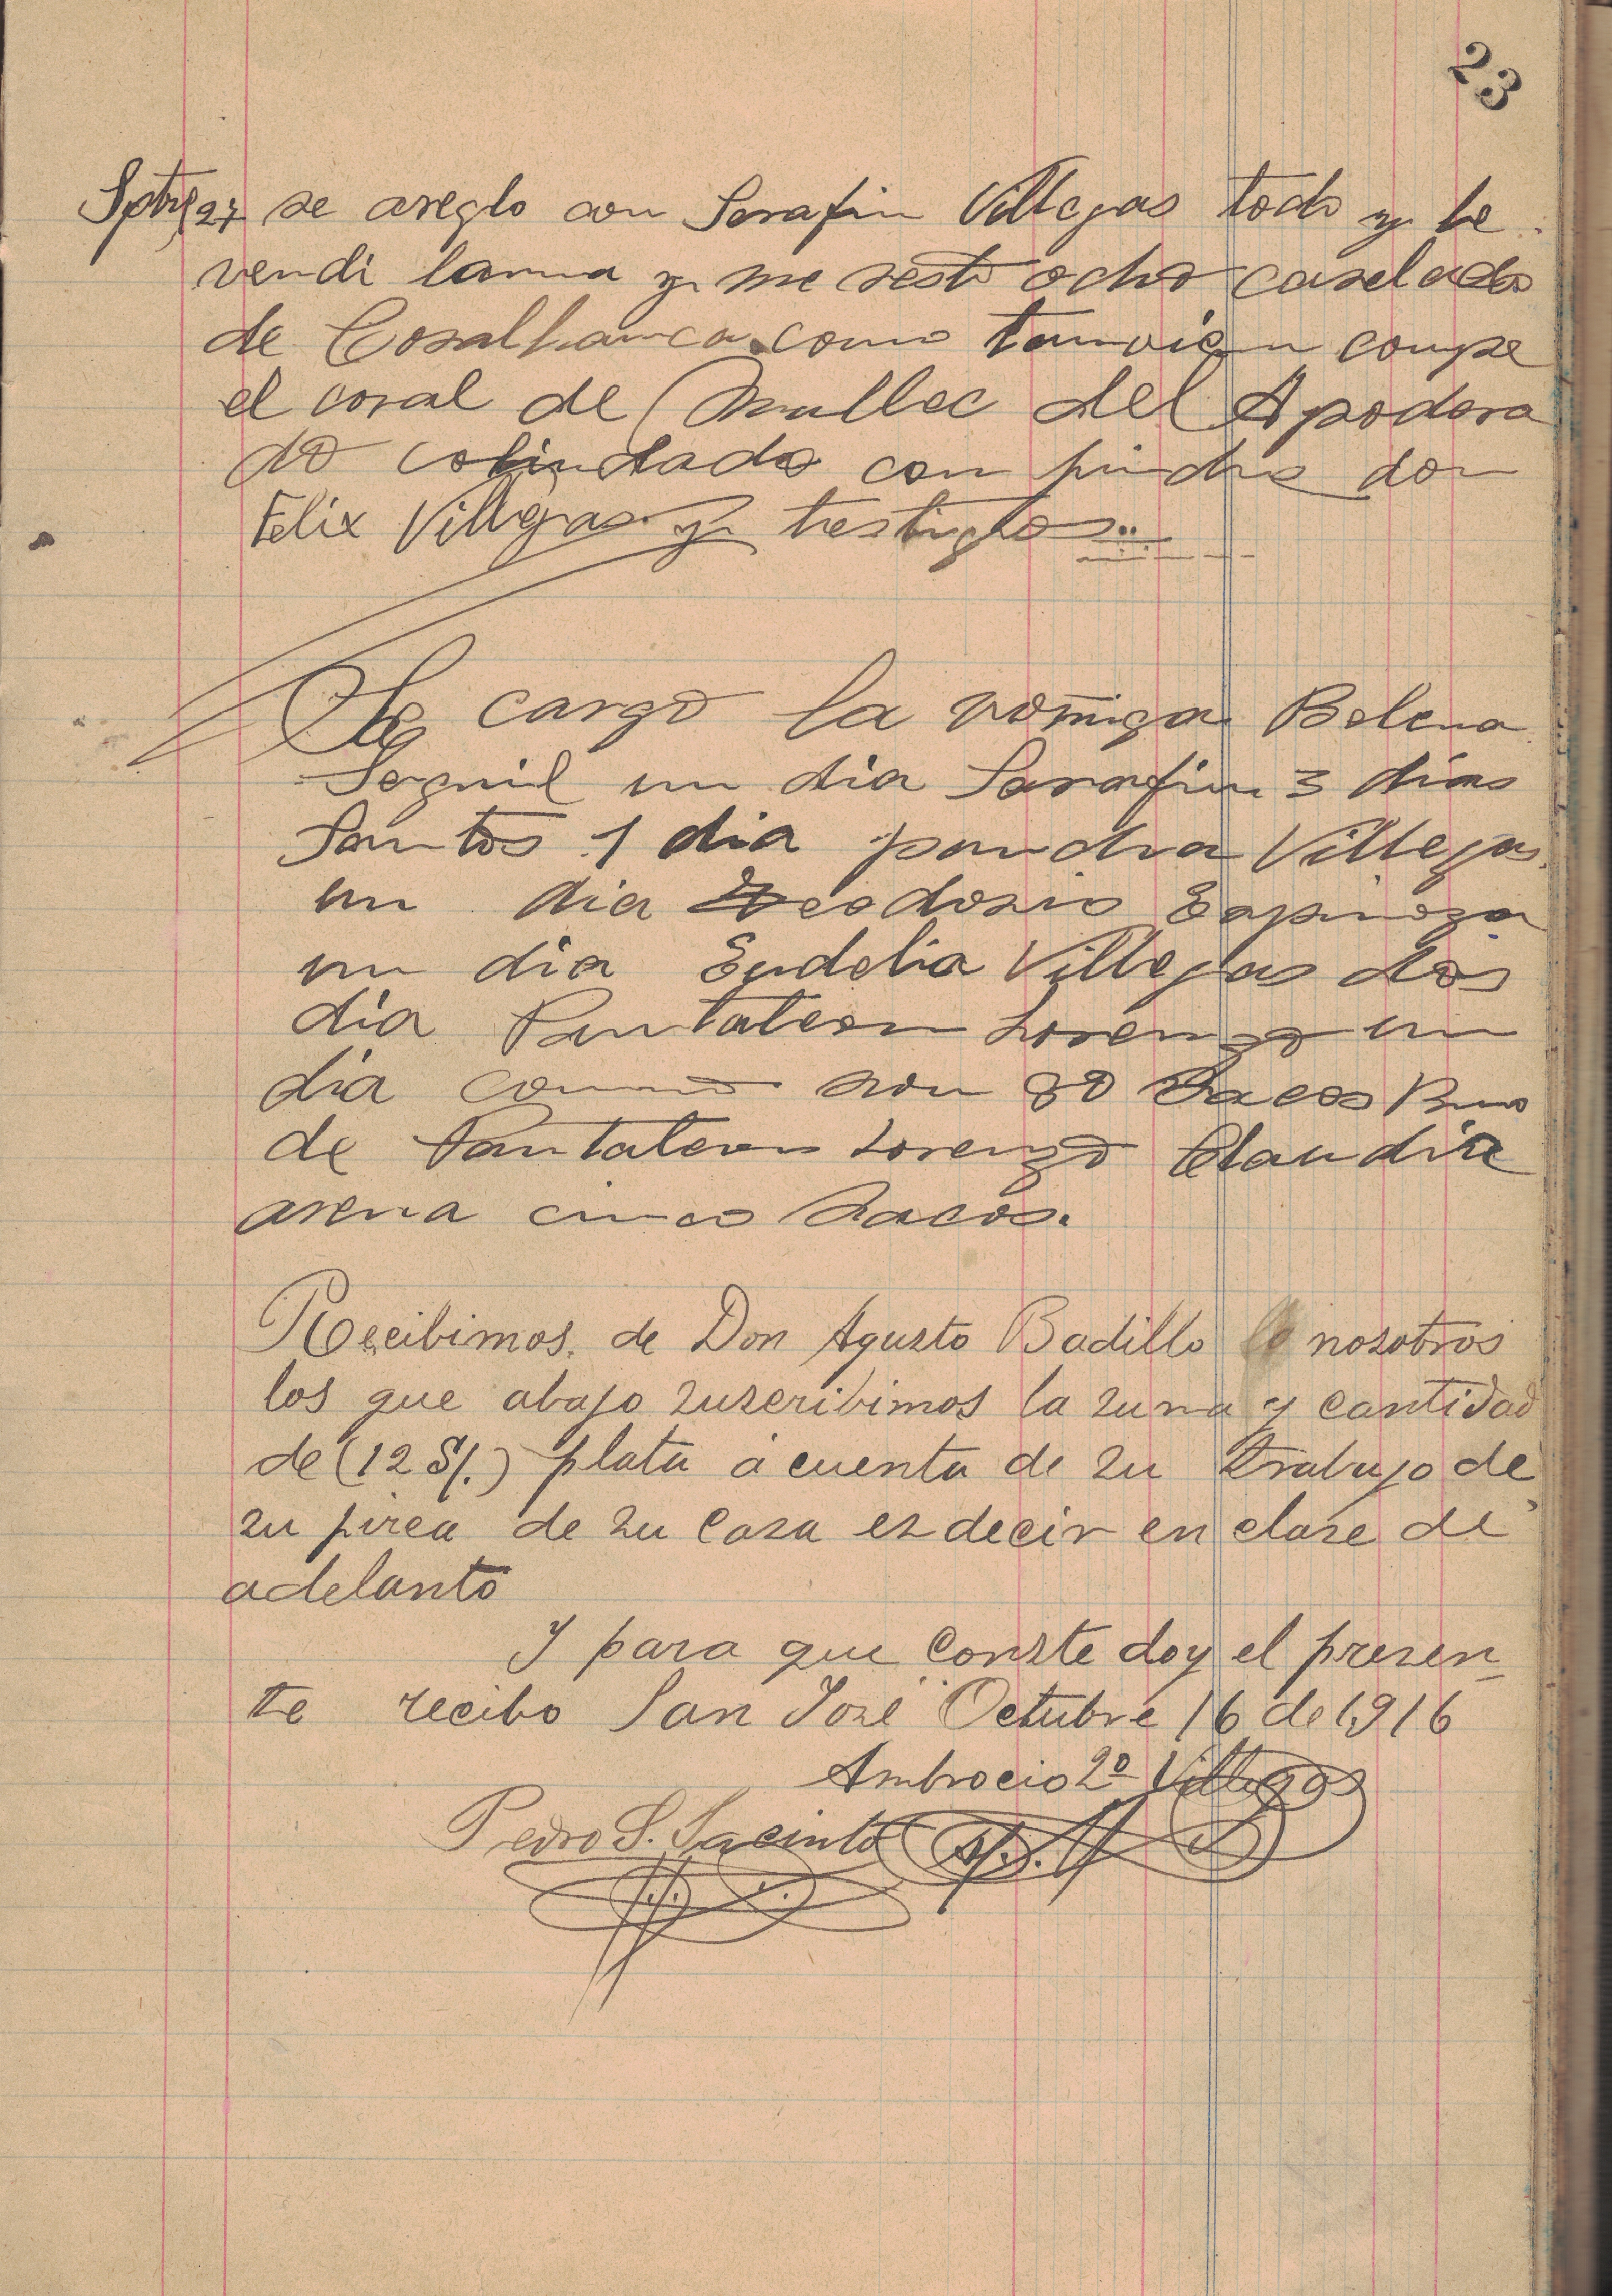 23
Sptre 27 se areglo con Serafin Villegas todo y le
vendi lanna y me resto ocho caselada
de Cosalhanca como tanvien conpre
el coral de Mullec del Apodera
do colindado con pindro don
Felix Villegas y trestigtos
Se cargo la romiga Belena
un dia Sarafin 3 dias
Santos 1 dia pandra Villegas
un dia Teodosio Espinoza
un dia Eudelia Villegas dos
dia Pantaleon Lorenzo un
dia como son 80 sacos
de Pantaleon Lorenzo Claudia
arena cinco sacos.
Recibimos. de Don Agusto Badillo nosotros
los que abajo suscribimos la suma y cantidad
de (12 S/.) plata á cuenta de su trabajo de
su pirca de su casa es decir en clase de
adelanto
Y para que conste doy el presen
te recibo San José Octubre 16 de 1916
Ambrocio 2º Villegas
Pedro S. Jacinto